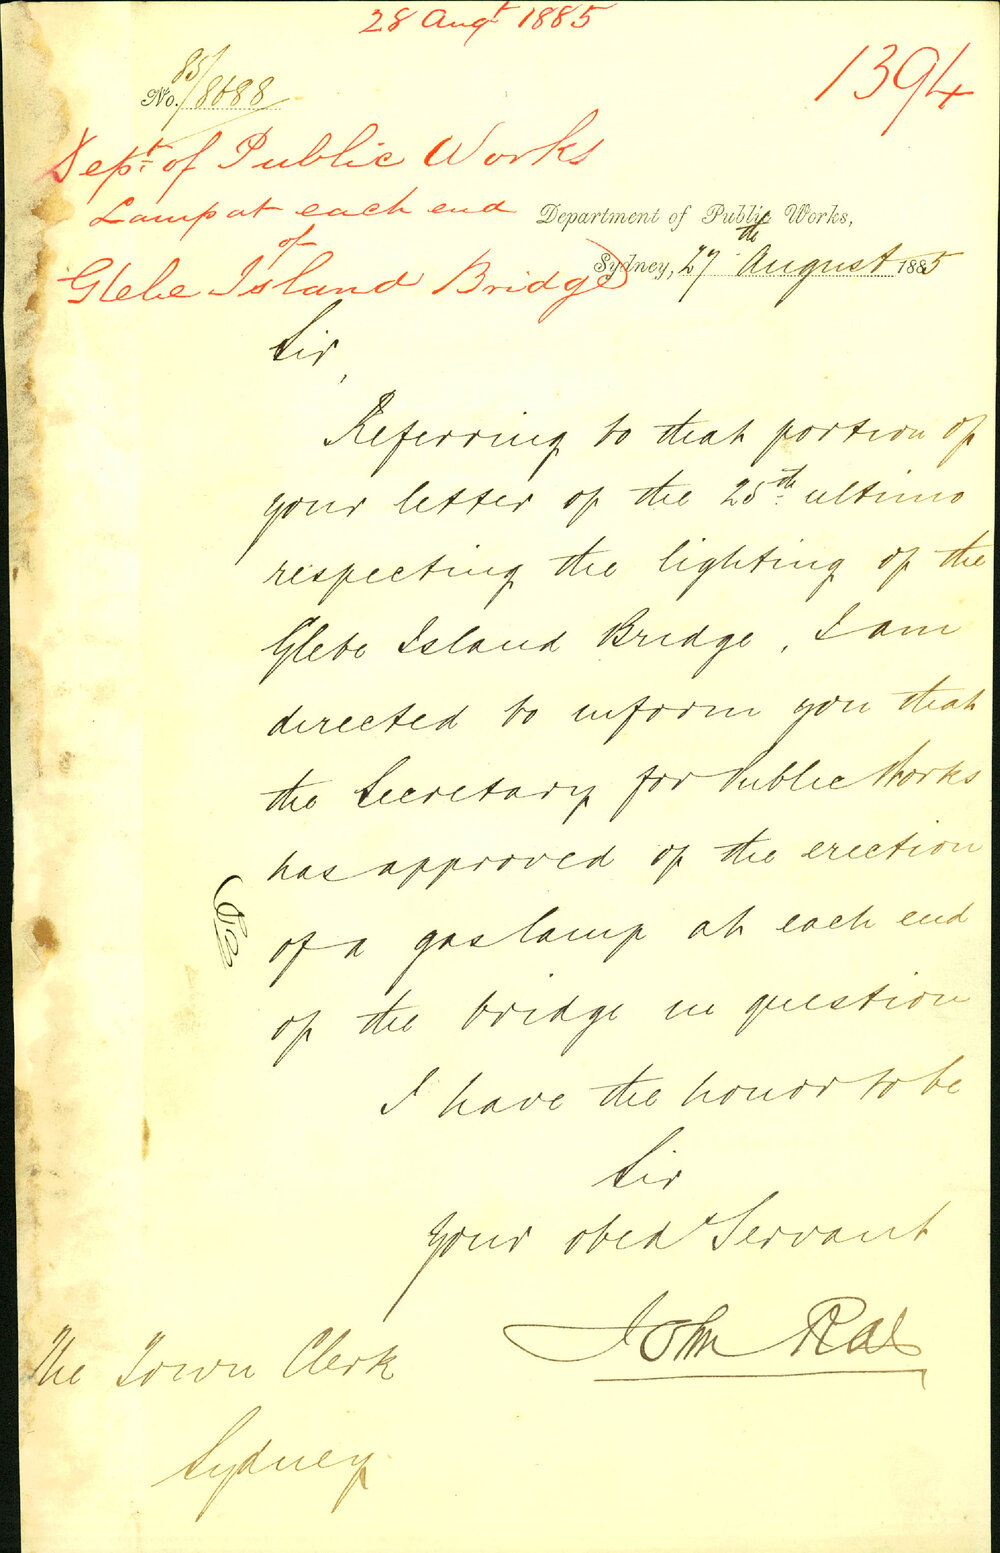 28 Augt 1885
1394
No. 85/8688
Dept. of Public Works
Lamp at each end
of
Glebe Island Bridge
Department of Public Works,
Sydney, 27th August 1885
Sir,
Referring to that portion of
your letter of the 25th ultimo
respecting the lighting of the
Glebe Island Bridge, I am
directed to inform you that
the Secretary for Public Works
has approved of the erection
of a gas lamp at each end
of the bridge in question
I have the honor to be
Sir
Your obedt Servant
John Rae
The Town Clerk
Sydney